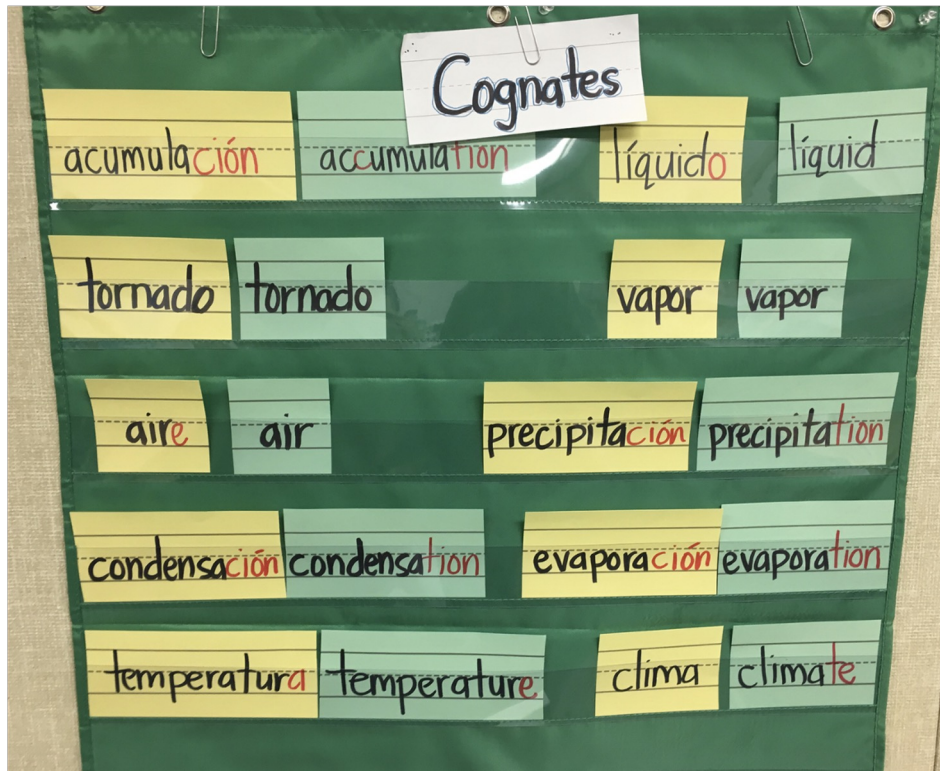 Cognates
acumulación accumulation líquido líquid
tornado tornado vapor vapor
aire air precipitación precipitation
condensación condensation evaporación evaporation
temperatura temperature clima climate